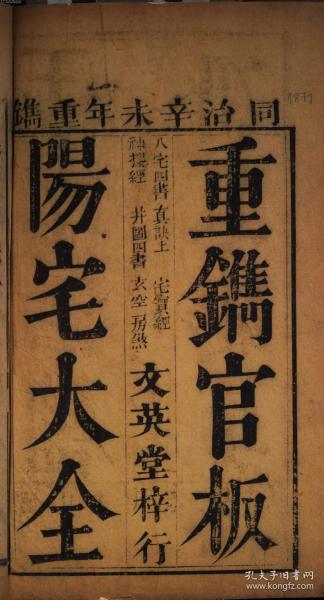 同治辛未年重鐫
1871
重鐫官板
八宅四書 真訣上 宅寶經
神搜經 井圖四書 玄空房煞
文英堂梓行
陽宅大全
孔夫子旧书网
www.kongfz.com